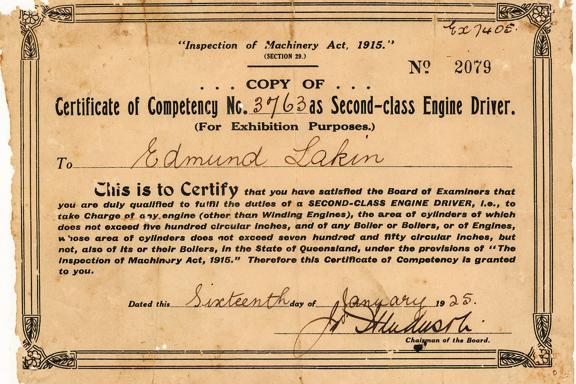 Ex 7405.
"Inspection of Machinery Act, 1915."
(SECTION 29.)
No 2079
... COPY OF ...
Certificate of Competency No. 3763 as Second-class Engine Driver.
(For Exhibition Purposes.)
To Edmund Lakin
This is to Certify that you have satisfied the Board of Examiners that
you are duly qualified to fulfil the duties of a SECOND-CLASS ENGINE DRIVER, i.e., to
take Charge of any engine (other than Winding Engines), the area of cylinders of which
does not exceed five hundred circular inches, and of any Boiler or Boilers, or of Engines,
whose area of cylinders does not exceed seven hundred and fifty circular inches, but
not, also of its or their Boilers, in the State of Queensland, under the provisions of "The
Inspection of Machinery Act, 1915." Therefore this Certificate of Competency is granted
to you.
Dated this Sixteenth day of January 1925.
Chairman of the Board.